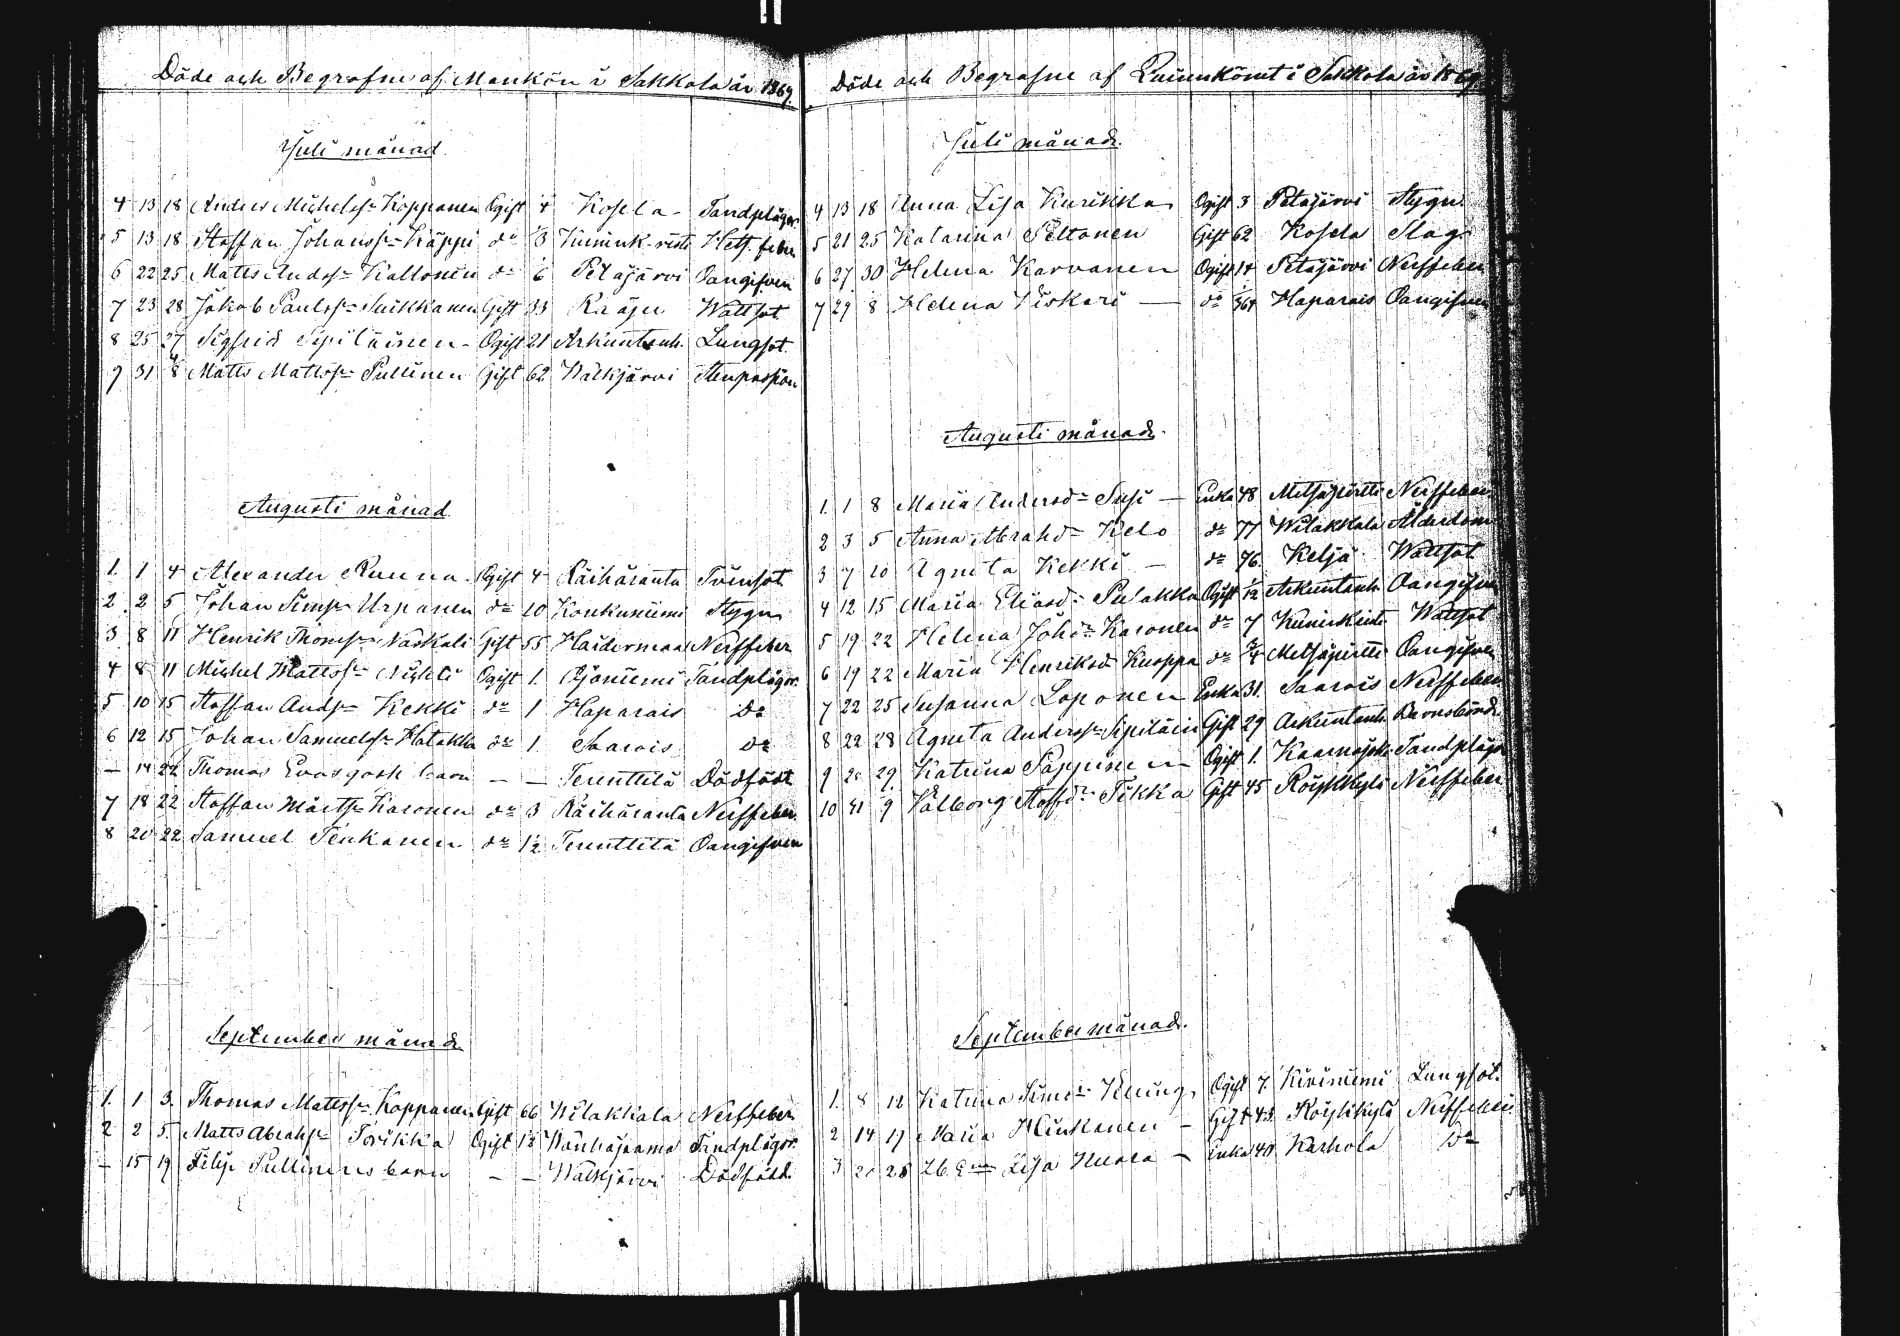 Döde och Begrafne af Mankön i Sakkola år 1869.
Juli månad
4 13 18 Anders Michelss= Koppanen Ogift 4 Kosela Tandplågor
5 13 18 Staffan Johanss= Käppi d= 3 Kunink-risti Hets. feber
6 22 25 Matts Andss= Kallonen d= 6 Petäjärvi Oangifven
7 23 28 Jakob Paulss= Suikkanen Gift 33 Rääju Wattsot
8 25 27 Sigfrid Sipiläinen Ogift 21 Arkuntanh. Lungsot.
9 31 8 Matts Mattss= Pullinen Gift 62 Walkjärvi Stenpassion
Augusti månad
1. 1 4 Alexander Ruuna Ogift 4 Räihäranta Tvinsot
2. 2 5 Johan Simss= Urpanen d= 10 Konkuniemi Stygn
3. 8 11 Henrik Thomss= Naskali Gift 55 Haidermaa Nerffeber
4 8 11 Michel Mattss= Nuhti Ogift 1. Röjäniemi Tandplågor.
5 10 15 Staffan Ands= Kekki d= 1 Haparais D=
6 12 15 Johan Samuelss= Hatakka d= 1 Saarois d=
— 14 22 Thomas Evasgosk barn — — Terenttilä Dödfödt
7 18 22 Staffan Märtss= Karonen d= 3 Räihäranta Nerffeber.
8 20 22 Samuel Tenkanen d= 1½ Terenttilä Oangifven
September månad
1. 1 3. Thomas Mattss= Koppanen Gift 66 Wilakkala Nerffeber
2 2 5. Matts Abrahss= Törikka Ogift 1½ Wanhajaama Tandplågor.
— 15 19 Filip Pullinens barn — — Walkjärvi Dödfödd.
Döde och Begrafne af Quinnkönet i Sakkola år 1869.
Juli månad.
4 13 18 Anna Lisa Kurikka Ogift 3 Petäjärvi Stygn
5 21 25 Katarina Peltonen Gift 62 Kosela Slag
6 27 30 Helena Karvanen Ogift 18 Petäjärvi Nerffeber
7 29 8 Helena Kiskari — d= Haparais Oangifven
Augusti månad.
1. 1 8 Maria Andersd= Susi — Enka 48 Metsäpirtti Nerffeber
2 3 5 Anna Abrahd= Kelo d= 77 Wilakkala Ålderdom
3 7 10 Agneta Kekki — d= 76. Kelja Wattsot
4 12 15 Maria Eliasd= Pulakka Ogift ½ Arkuntanh. Oangifven
5 19 22 Helena Johd= Karonen d= 7 Wattsot
6 19 22 Maria Henriksd= Kuoppa d= ¾ Metsäpirtti Oangifven
7 22 25 Susanna Loponen Enka 31. Saarois Nerffeber
8 22 28 Agneta Anderss= Sipiläin Gift 29 Arkuntanh. Barnsbörd.
9 20 29. Katrina Pappinen Ogift 1. Tandplågor
10 31 9 Wålborg Staffd= Tikka Gift 45 Röykkylä Nerffeber
September månad.
1. 8 12 Katrina Simd= Ogift 7. Kiviniemi Lungsot.
2 14 19 Maria Hinkanen — Gift 43. Röykkylä Nerffeber
3 20 26 Lisa — Enka 40 Karhola D=